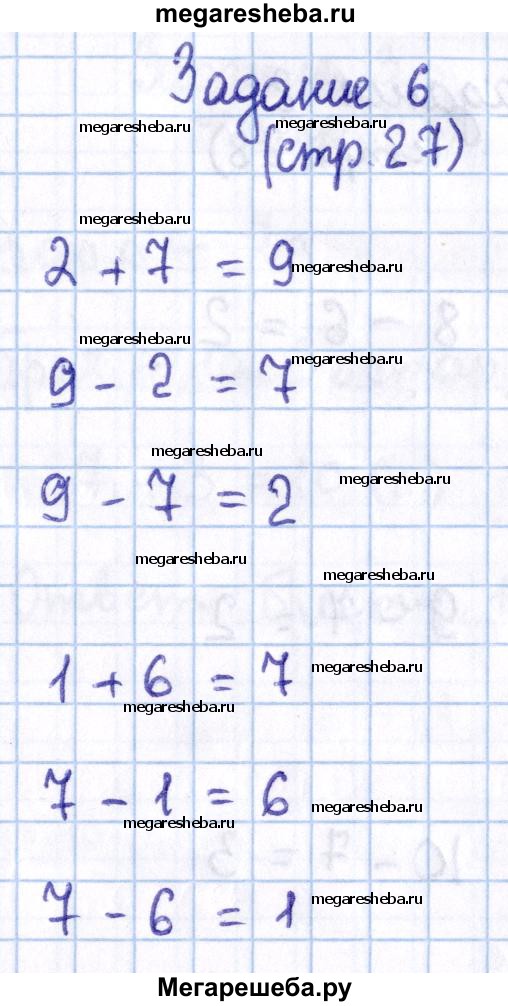 megaresheba.ru
Задание 6
megaresheba.ru megaresheba.ru
(стр. 27)
megaresheba.ru
2 + 7 = 9
megaresheba.ru
megaresheba.ru
megaresheba.ru
9 - 2 = 7
megaresheba.ru
megaresheba.ru
9 - 7 = 2
megaresheba.ru
megaresheba.ru
1 + 6 = 7
megaresheba.ru
megaresheba.ru
7 - 1 = 6
megaresheba.ru
megaresheba.ru
7 - 6 = 1
megaresheba.ru
Мегарешеба.ру